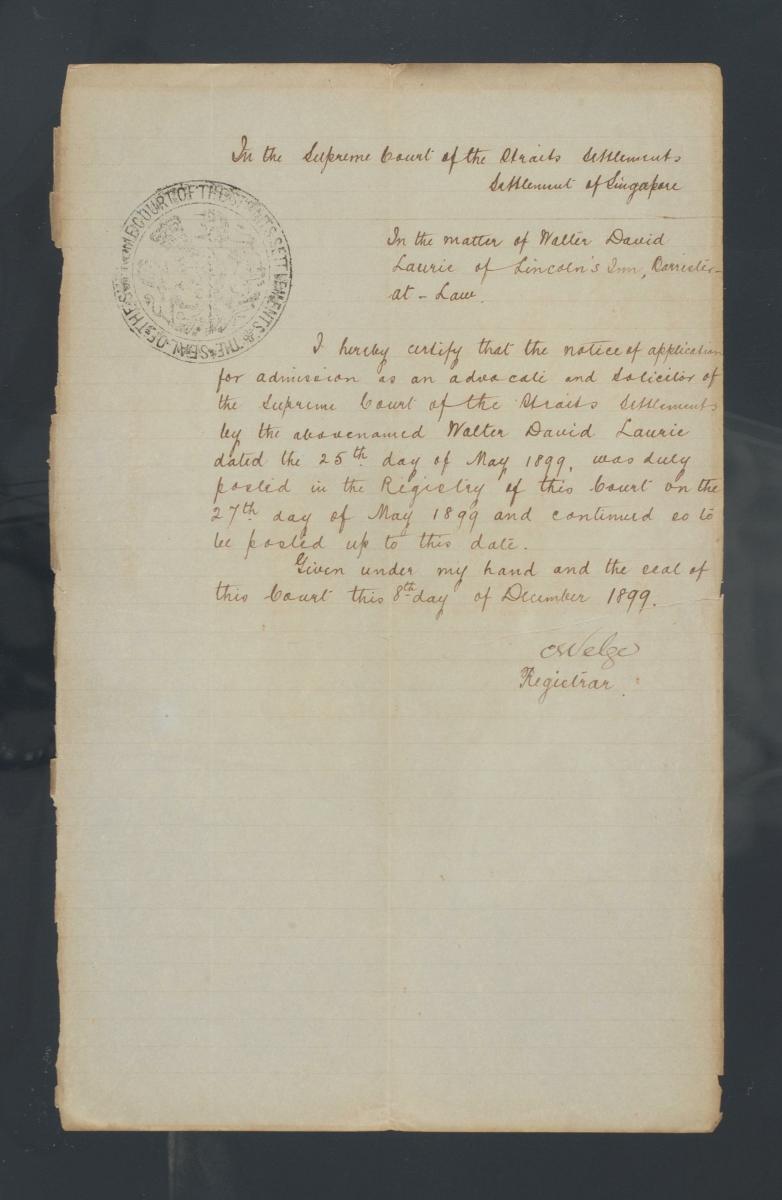 In the Supreme Court of the Straits Settlements
Settlement of Singapore
THE SEAL OF THE SUPREME COURT OF THE STRAITS SETTLEMENTS
In the matter of Walter David
Laurie of Lincoln's Inn, Barrister-
at-Law.
I hereby certify that the notice of application
for admission as an advocate and solicitor of
the Supreme Court of the Straits Settlements
by the abovenamed Walter David Laurie
dated the 25th day of May 1899, was duly
posted in the Registry of this Court on the
27th day of May 1899 and continued so to
be posted up to this date.
Given under my hand and the seal of
this Court this 8th day of December 1899.
Registrar.